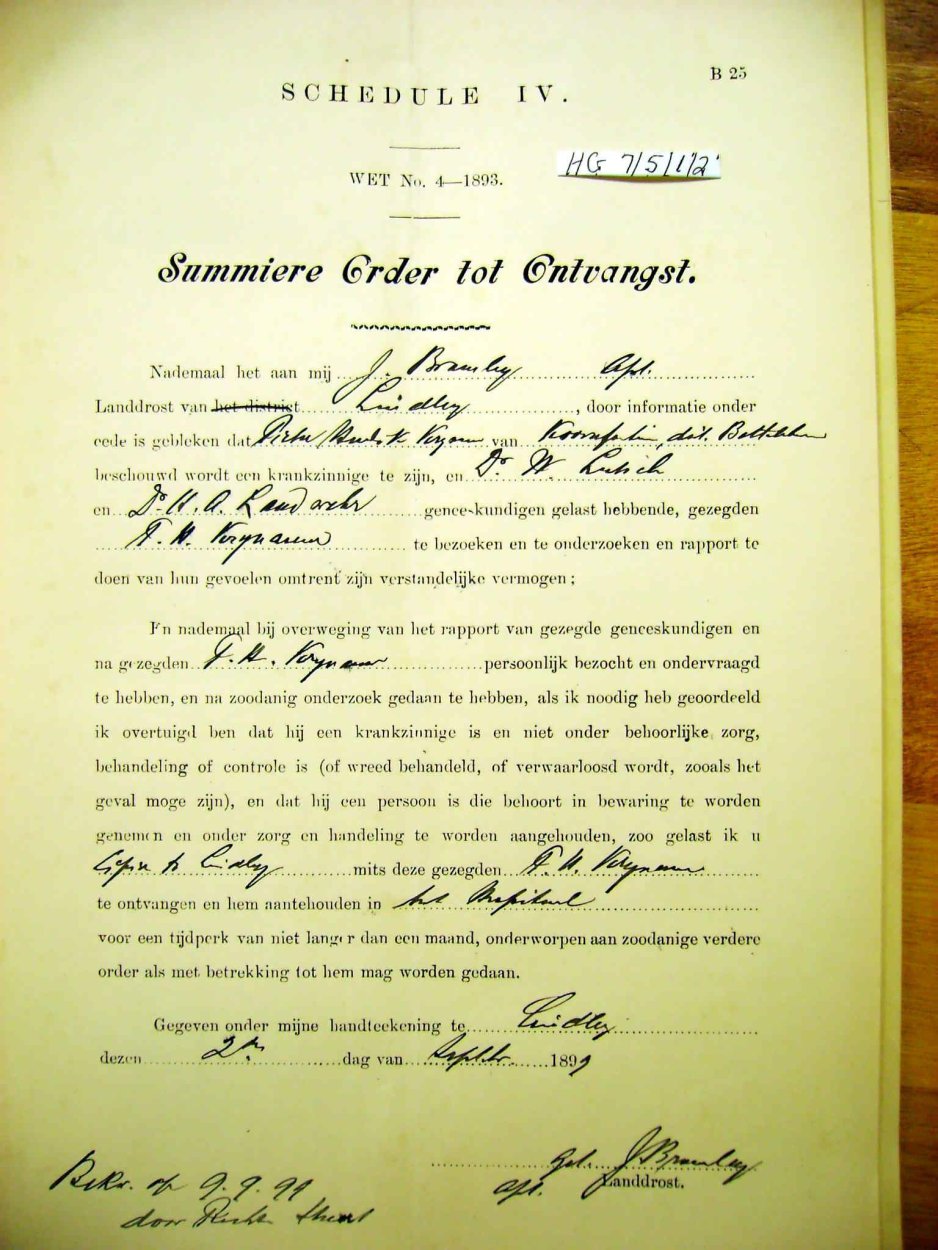 B 25
SCHEDULE IV.
HG 7/5/1/2
WET No. 4—1893.
Summiere Order tot Ontvangst.
Nademaal het aan mij J. Bramley Apt.
Landdrost van het district Lindley, door informatie onder
eede is gebleken dat van
beschouwd wordt een krankzinnige te zijn, en Dr. W.
en Dr. H. A. Landwehr geneeskundigen gelast hebbende, gezegden
te bezoeken en te onderzoeken en rapport te
doen van hun gevoelen omtrent zijn verstandelijke vermogen;
En nademaal bij overweging van het rapport van gezegde geneeskundigen en
na gezegden persoonlijk bezocht en ondervraagd
te hebben, en na zoodanig onderzoek gedaan te hebben, als ik noodig heb geoordeeld
ik overtuigd ben dat hij een krankzinnige is en niet onder behoorlijke zorg,
behandeling of controle is (of wreed behandeld, of verwaarloosd wordt, zooals het
geval moge zijn), en dat hij een persoon is die behoort in bewaring te worden
genemen en onder zorg en handeling te worden aangehouden, zoo gelast ik u
Lindley mits deze gezegden
te ontvangen en hem aantehouden in het
voor een tijdperk van niet langer dan een maand, onderworpen aan zoodanige verdere
order als met betrekking tot hem mag worden gedaan.
Gegeven onder mijne handteekening te Lindley
dezen 2n dag van Septbr. 1899
Get. J Bramley
Apt. Landdrost.
Bekr. op 9.9.99
door Rechter